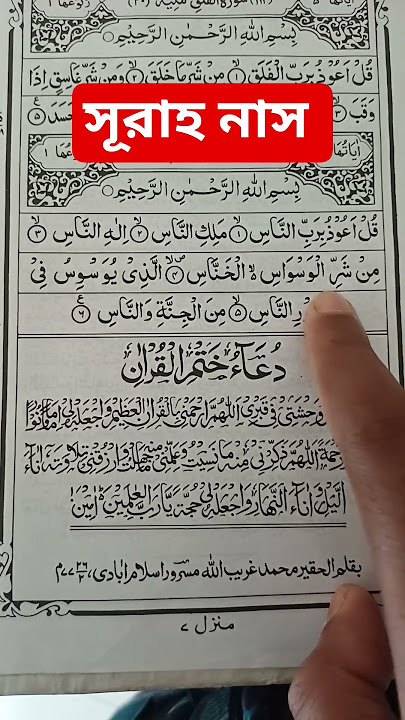 بِسْمِ اللهِ الرَّحْمٰنِ الرَّحِيْمِ
قُلْ اَعُوْذُ بِرَبِّ الْفَلَقِ ۙ﴿۱﴾ مِنْ شَرِّ مَا خَلَقَ ۙ﴿۲﴾ وَمِنْ شَرِّ غَاسِقٍ اِذَا
وَقَبَ ۙ﴿۳﴾ حَسَدَ ﴿۵﴾
সূরাহ নাস
بِسْمِ اللهِ الرَّحْمٰنِ الرَّحِيْمِ
قُلْ اَعُوْذُ بِرَبِّ النَّاسِ ۙ﴿۱﴾ مَلِكِ النَّاسِ ۙ﴿۲﴾ اِلٰهِ النَّاسِ ۙ﴿۳﴾
مِنْ شَرِّ الْوَسْوَاسِ ۬ۙ الْخَنَّاسِ ۪ۙ﴿۴﴾ الَّذِىْ يُوَسْوِسُ فِىْ
النَّاسِ ۙ﴿۵﴾ مِنَ الْجِنَّةِ وَالنَّاسِ ﴿۶﴾
دُعَآءُ خَتْمِ الْقُرْاٰنِ
وَحْشَتِىْ فِىْ قَبْرِىْ اَللّٰهُمَّ ارْحَمْنِىْ بِالْقُرْاٰنِ الْعَظِيْمِ وَاجْعَلْهُ لِىْ اِمَامًا وَّنُوْرًا
رَحْمَةً اَللّٰهُمَّ ذَكِّرْنِىْ مِنْهُ مَا نَسِيْتُ وَعَلِّمْنِىْ مِنْهُ مَا جَهِلْتُ وَارْزُقْنِىْ تِلَاوَتَهٗ اٰنَآءَ
الَّيْلِ وَاٰنَآءَ النَّهَارِ وَاجْعَلْهُ لِىْ حُجَّةً يَّا رَبَّ الْعٰلَمِيْنَ اٰمِيْن
بقلم الحقير محمد غريب الله مسرور اسلام آبادی
منزل ۷